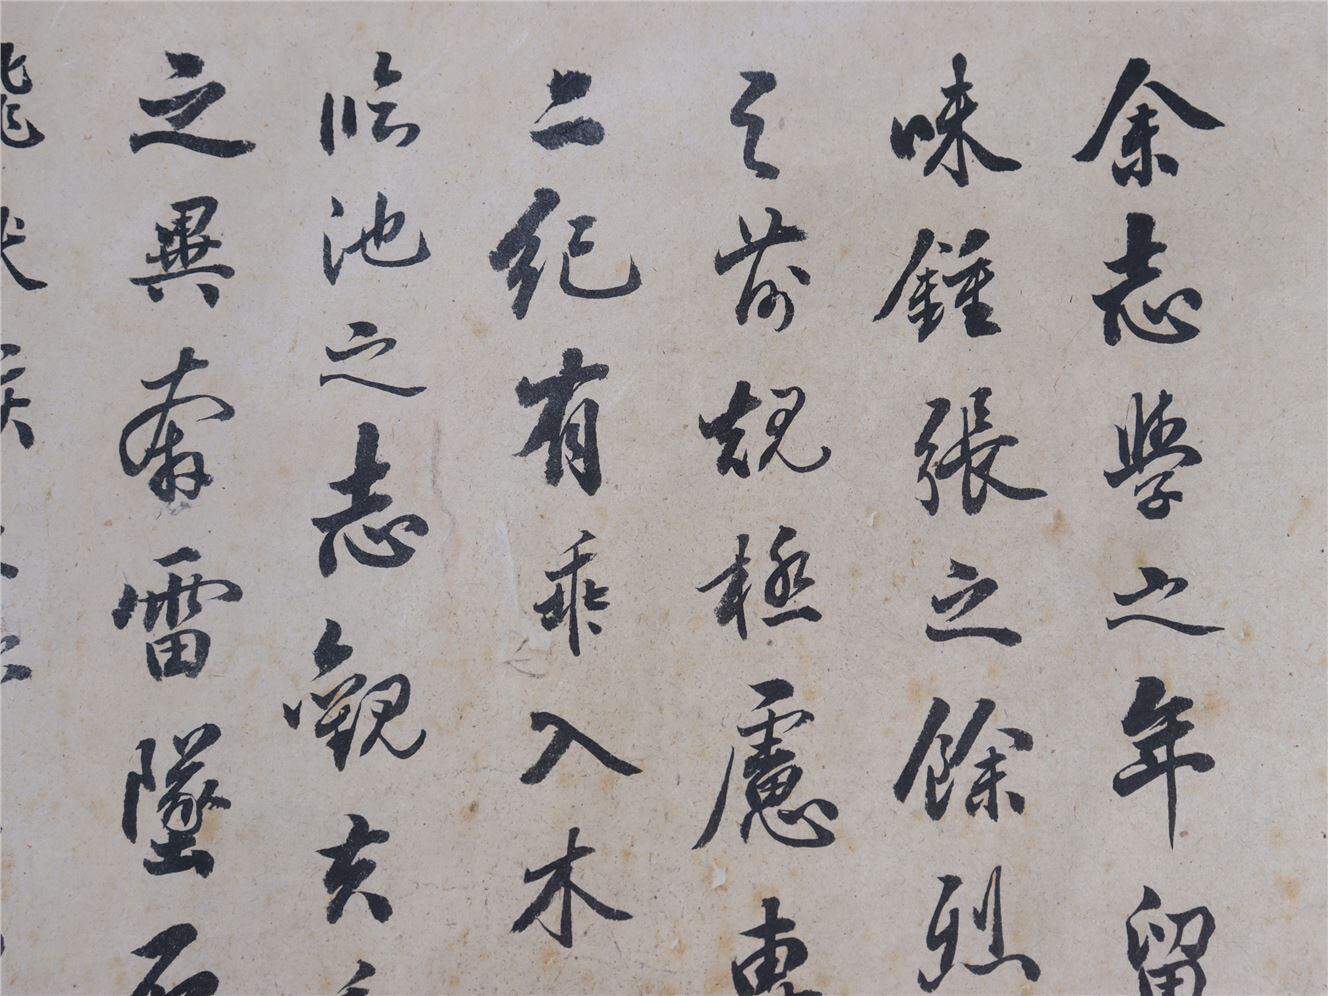 余志學之年留
味鍾張之餘烈
之前規極慮專
二紀有乖入木
臨池之志觀夫
之異奔雷墜石